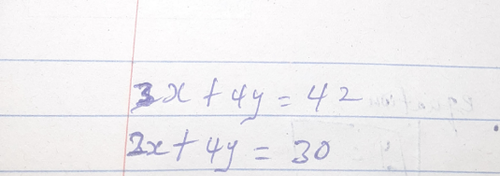 3x + 4y = 42
2x + 4y = 30